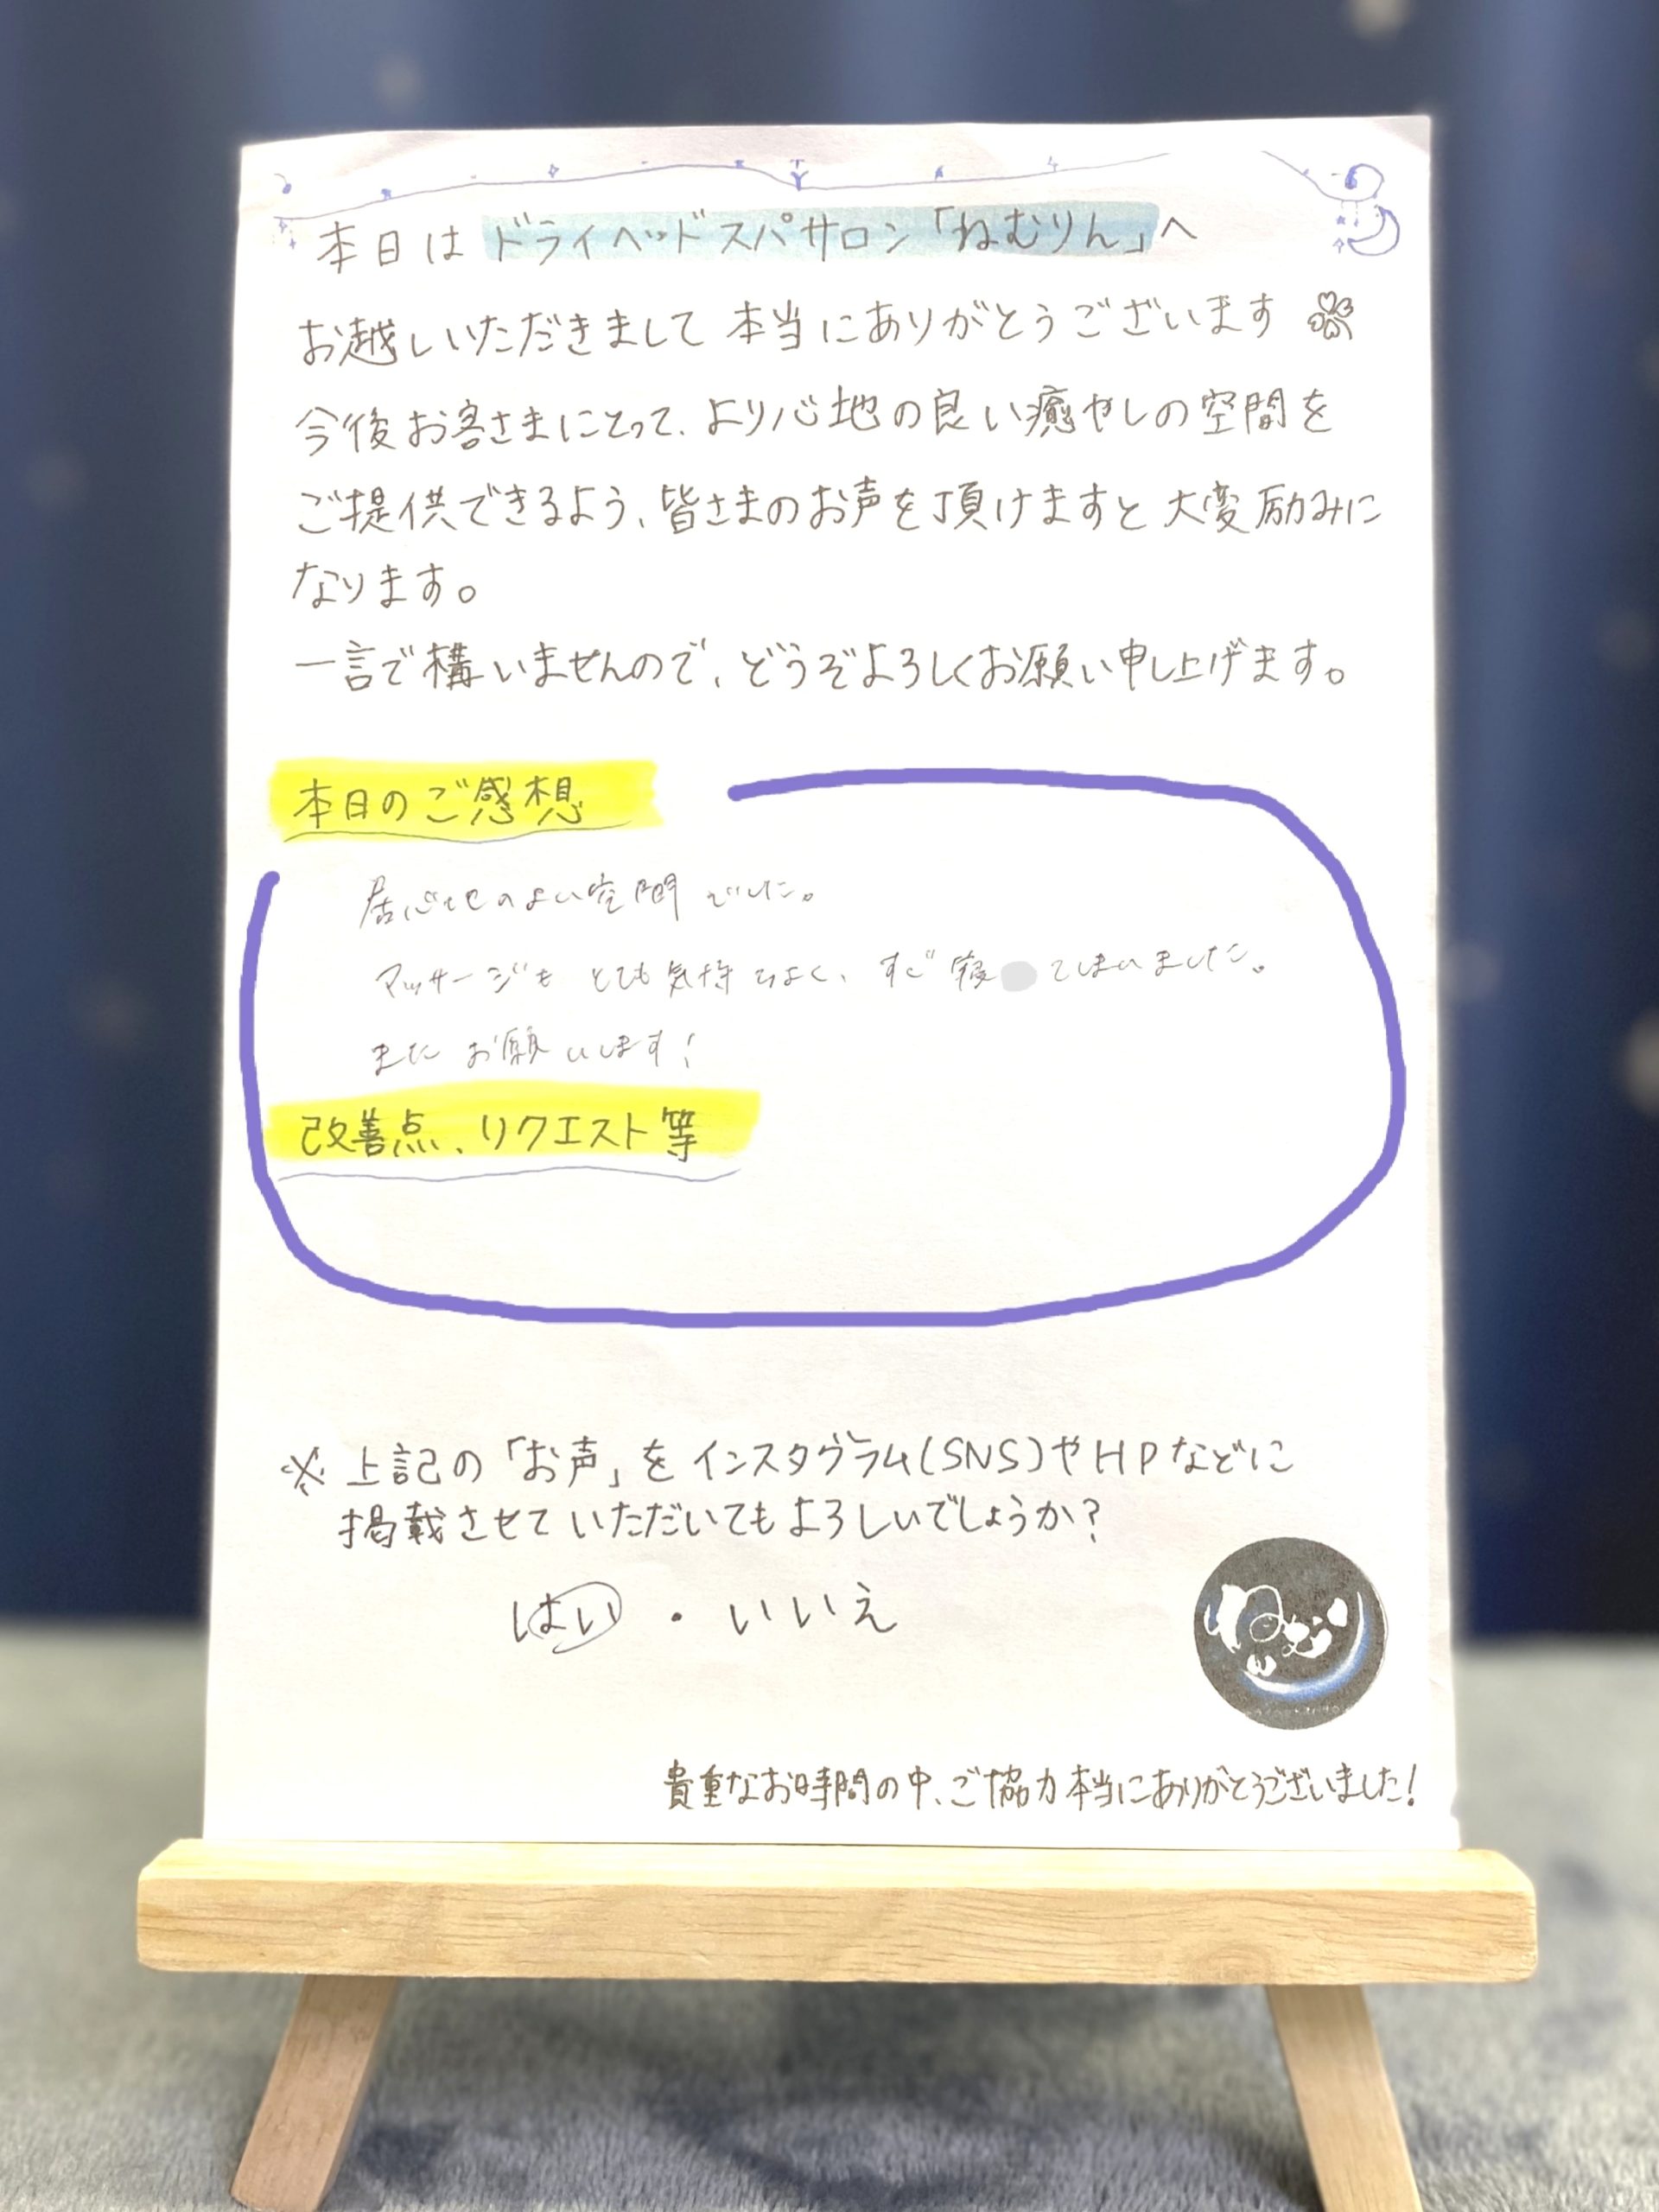 本日はドライヘッドスパサロン「ねむりん」へ
お越しいただきまして本当にありがとうございます
今後お客さまにとって、より心地の良い癒やしの空間を
ご提供できるよう、皆さまのお声を頂けますと大変励みに
なります。
一言で構いませんので、どうぞよろしくお願い申し上げます。
本日のご感想
居心地のよい空間でした。
マッサージもとても気持ちよく、すぐ寝てしまいました。
またお願いします!
改善点、リクエスト等
※上記の「お声」をインスタグラム(SNS)やHPなどに
掲載させていただいてもよろしいでしょうか?
はい・いいえ
貴重なお時間の中、ご協力本当にありがとうございました!